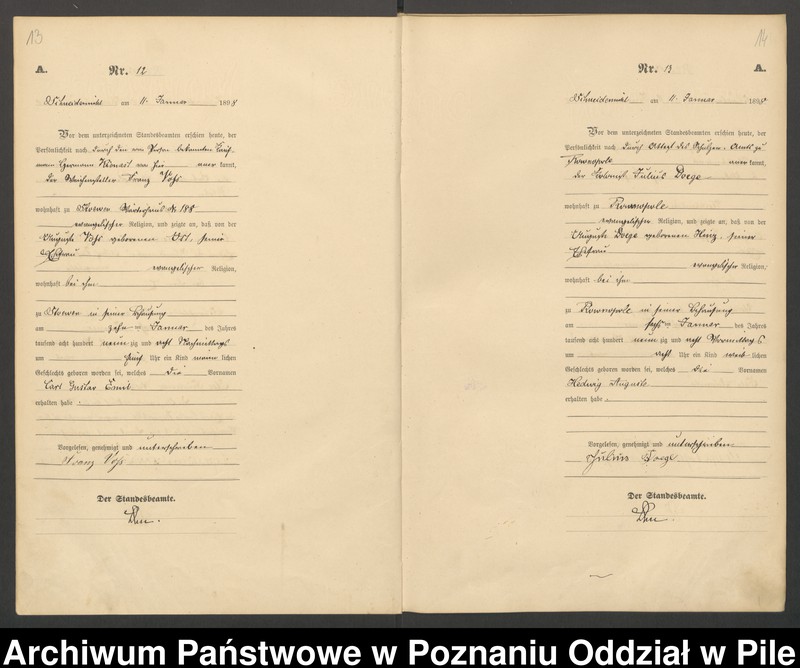 13
A.
Nr. 12
Schneidemühl am 11. Januar 1898
Vor dem unterzeichneten Standesbeamten erschien heute, der
Persönlichkeit nach durch den von Person bekannten Kauf-
mann Hermann kannt,
der Weichensteller Franz Voß
wohnhaft zu Stoewen Wärterhaus Nr. 188
evangelischer Religion, und zeigte an, daß von der
Auguste Voß geborenen Ost, seiner
Ehefrau
evangelischer Religion,
wohnhaft bei ihm
zu Stoewen in seiner Behausung
am zehnten Januar des Jahres
tausend acht hundert neunzig und acht Nachmittags
um fünf Uhr ein Kind männlichen
Geschlechts geboren worden sei, welches die Vornamen
Carl Gustav Emil
erhalten habe.
Vorgelesen, genehmigt und unterschrieben
Franz Voß
Der Standesbeamte.
14
Nr. 13
A.
Schneidemühl am 11. Januar 1898
Vor dem unterzeichneten Standesbeamten erschien heute, der
Persönlichkeit nach durch Attest des Schulzen-Amts zu
Romanopole anerkannt,
der Kolonist Julius Doege
wohnhaft zu Romanopole
evangelischer Religion, und zeigte an, daß von der
Auguste Doege geborenen Hinz, seiner
Ehefrau
evangelischer Religion,
wohnhaft bei ihm
zu Romanopole in seiner Behausung
am sechsten Januar des Jahres
tausend acht hundert neunzig und acht Vormittags
um acht Uhr ein Kind weiblichen
Geschlechts geboren worden sei, welches die Vornamen
Hedwig Auguste
erhalten habe.
Vorgelesen, genehmigt und unterschrieben
Julius Doege
Der Standesbeamte.
Archiwum Państwowe w Poznaniu Oddział w Pile